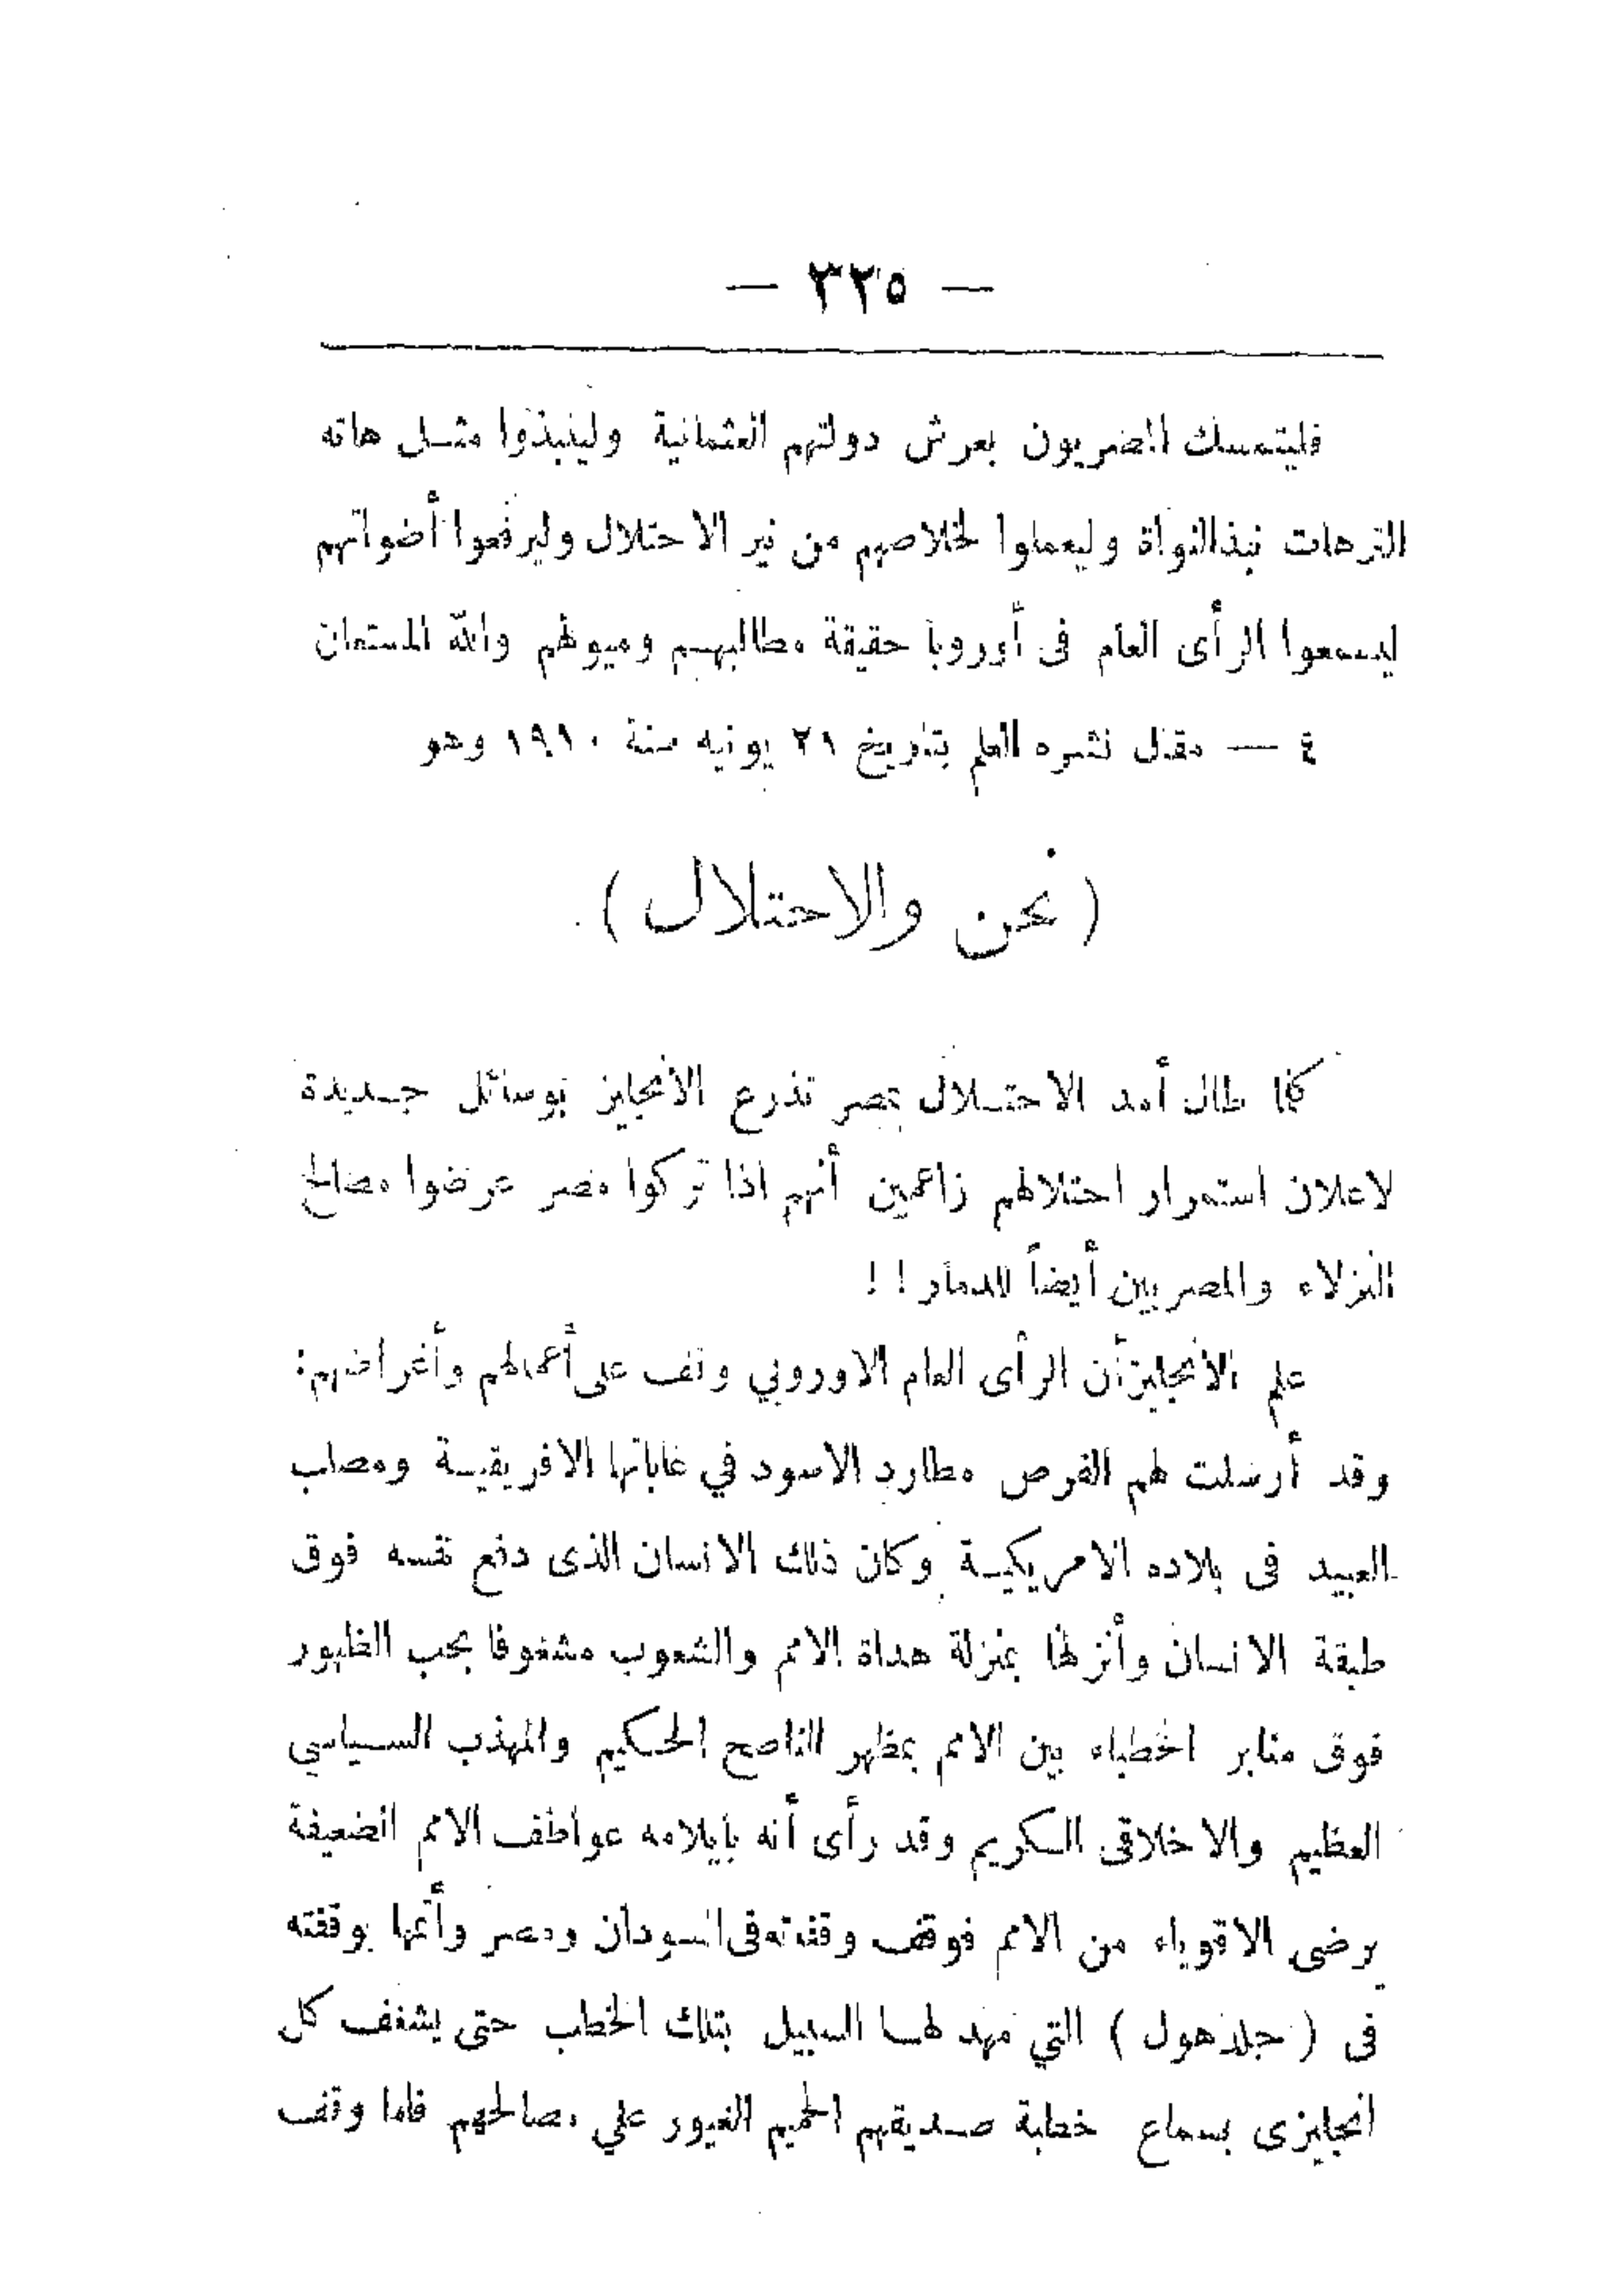 — ٣٢٥ —
فليتمسك المصريون بعرش دولتهم العثمانية ولينبذوا مثل هاته
الترهات نبذ النواة وليعملوا لخلاصهم من نير الاحتلال وليرفعوا أصواتهم
ليسمعوا الرأى العام فى أوروبا حقيقة مطالبهم وميولهم والله المستعان
٤ — مقال نشره العلم بتاريخ ٢١ يونيه سنة ١٩١٠ وهو
( نحن والاحتلال )
كلما طال أمد الاحتلال بمصر تذرع الانجليز بوسائل جديدة
لاعلان استمرار احتلالهم زاعمين أنهم اذا تركوا مصر عرضوا مصالح
النزلاء والمصريين أيضاً للدمار ! !
علم الانجليز أن الرأى العام الاوروبي وقف على أعمالهم وأغراضهم :
وقد أرسلت لهم الفرص مطارد الاسود في غاباتها الافريقية ومصلب
العبيد فى بلاده الامريكية وكان ذلك الانسان الذى دفع نفسه فوق
طبقة الانسان وأنزلها بمنزلة هداة الامم والشعوب مشغوفا بحب الظهور
فوق منابر الخطباء بين الامم بمظهر الناصح الحكيم والمهذب السياسي
العظيم والاخلاقى الكريم وقد رأى أنه بايلامه عواطف الامم الضعيفة
يرضى الاقوياء من الامم فوقف وقفته فى السودان ومصر وأتمها بوقفته
فى ( جلدهول ) التي مهد لها السبيل بتلك الخطب حتى يشغف كل
انجليزى بسماع خطبة صديقهم الحميم الغيور علي مصالحهم فلما وقف